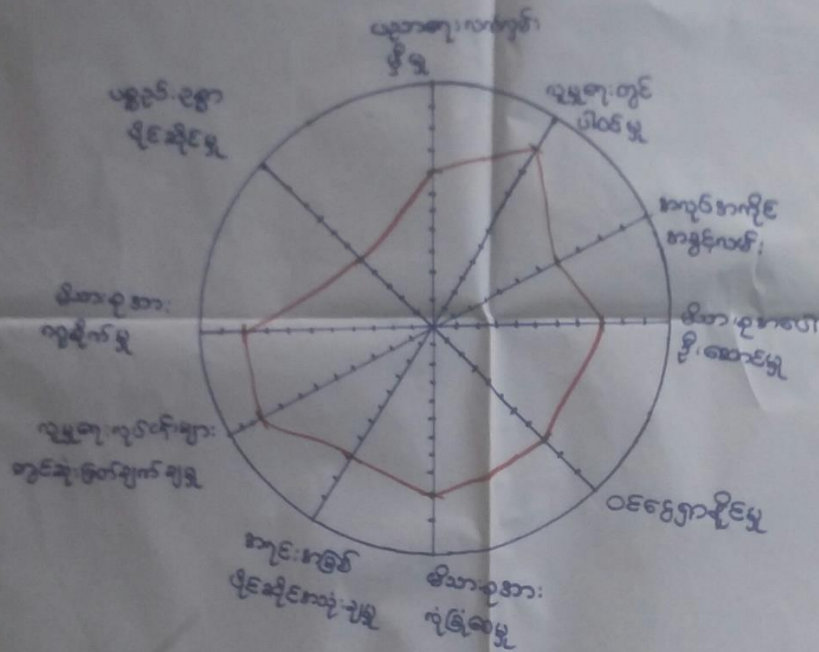 ပညာရေးလက်လှမ်း
မှီမှု
လူမှုရေးတွင်
ပါဝင်မှု
အလုပ်အကိုင်
အခွင့်လမ်း
မိသားစုအပေါ်
ဦးဆောင်မှု
ဝင်ငွေရှာနိုင်မှု
မိသားစုအား
လုံခြုံစေမှု
အရင်းအမြစ်
ပိုင်ဆိုင်အသုံးချမှု
လူမှုရေးလုပ်ငန်းများ
တွင်ဆုံးဖြတ်ချက်ချမှု
မိသားစုအား
ကျွေးမှု
ပစ္စည်းဥစ္စာ
ပိုင်ဆိုင်မှု